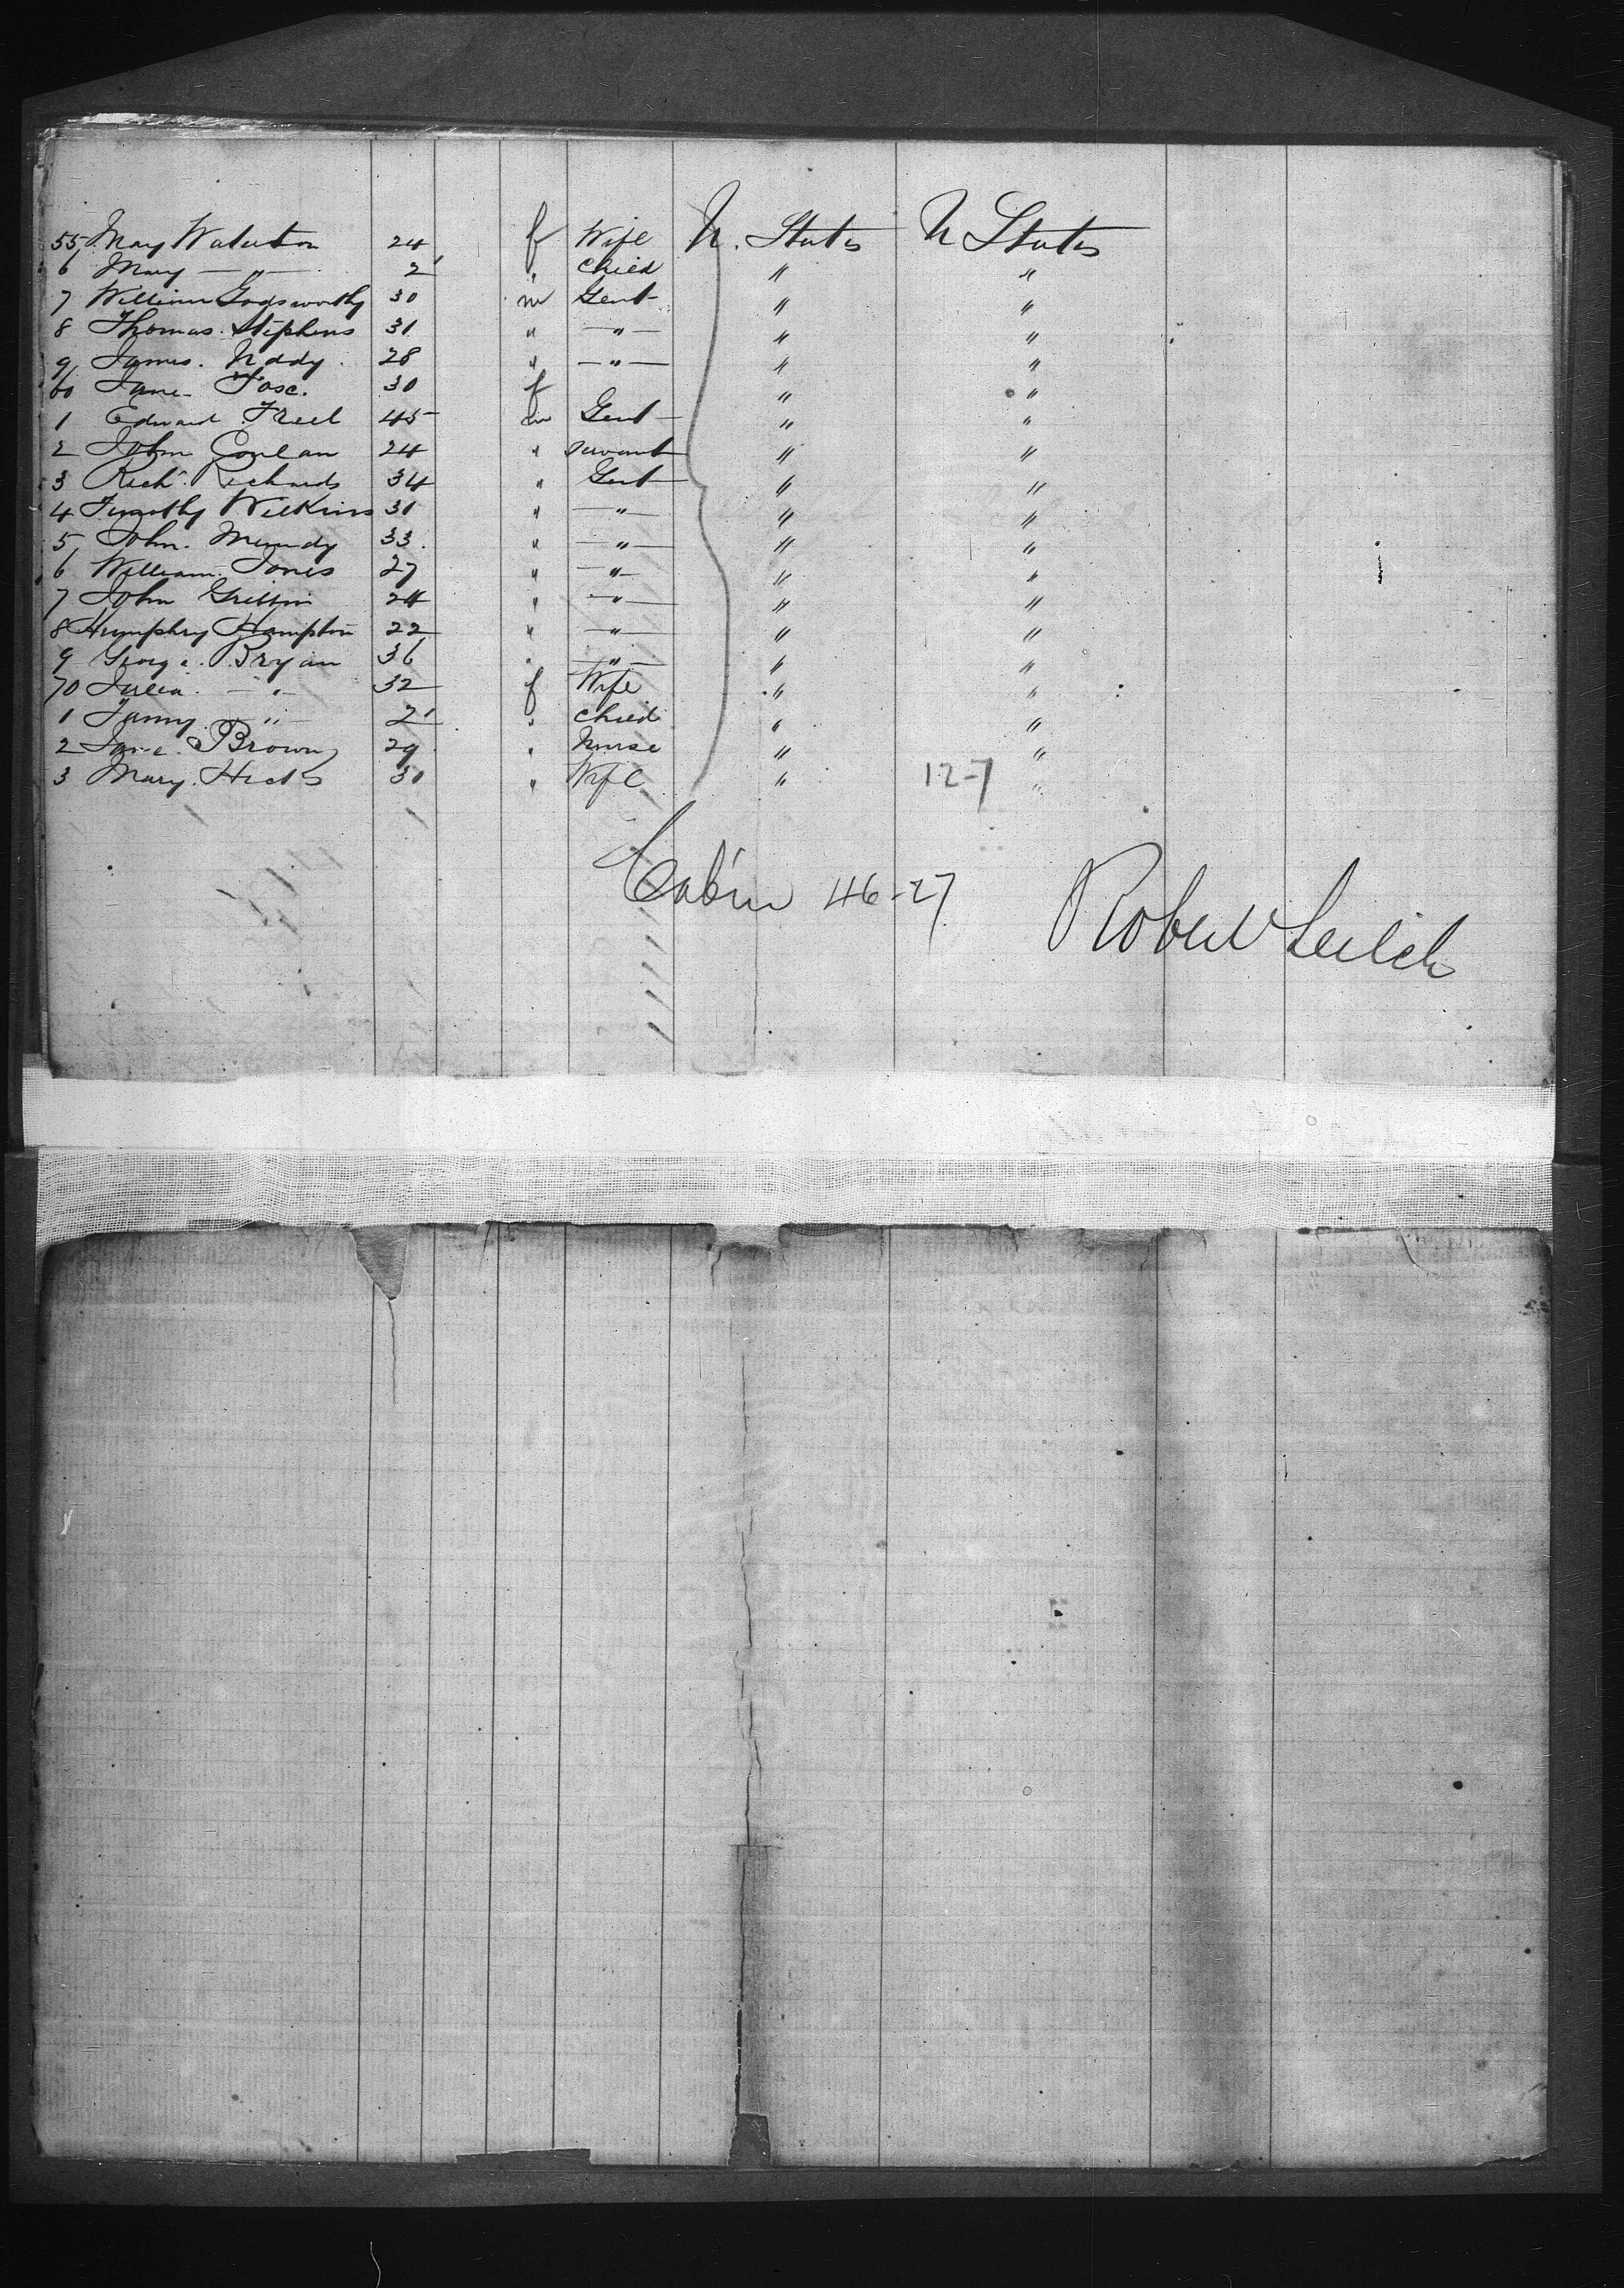 55 Mary Waterton 24 f Wife U. States U States
6 Mary — " — 2 " Child " "
7 William Godsworthy 30 m Gent " "
8 Thomas Stephens 31 " — " — " "
9 James Uddy 28 " — " — " "
60 Jane 30 f " "
1 Edward Freel 45 m Gent " "
2 John Conlan 24 " servant " "
3 Richd. Richards 34 " Gent " "
4 Timothy Wilkins 31 " — " — " "
5 John Mundy 33 " — " — " "
6 William Jones 27 " — " — " "
7 John Griffin 24 " — " — " "
8 Humphry Hampton 22 " — " — " "
9 George Bryan 36 " — " — " "
70 Julia — " — 32 f Wife " "
1 Fanny — " — 2 " Child " "
2 Jane Brown 29 " Nurse " "
3 Mary Hicks 30 " Wife " 12-7 "
Cabin 46-27 Robert Leitch